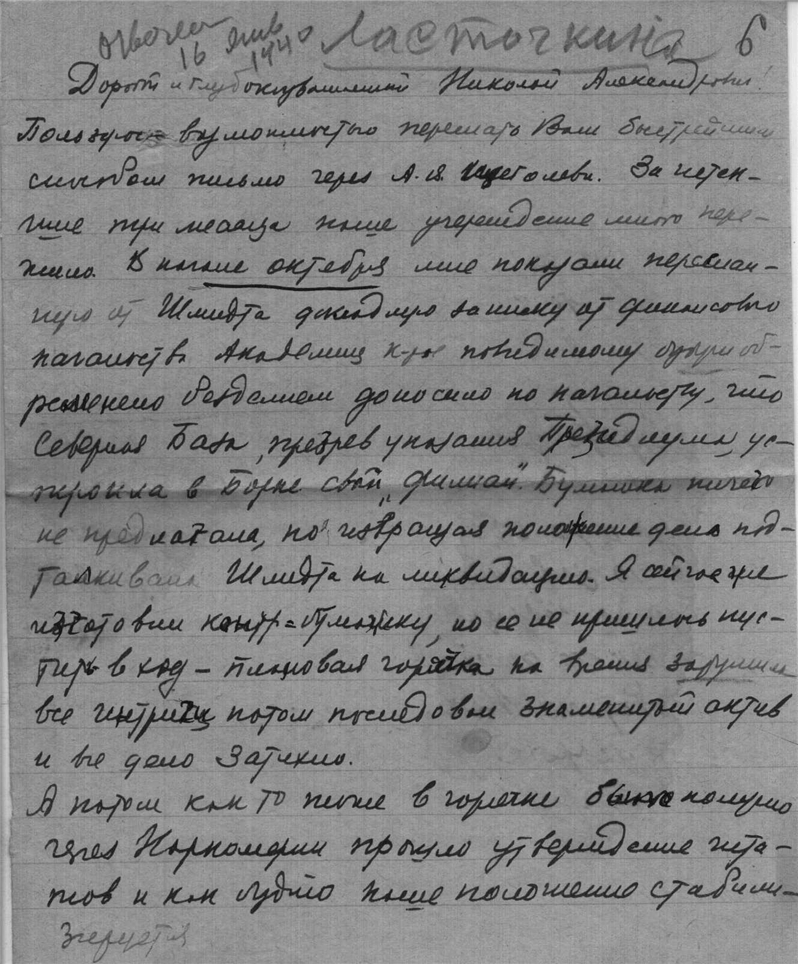 отвечен
16 янв
1940
Ласточкина 6
Дорогой и глубокоуважаемый Николай Александрович!
Пользуюсь возможностью переслать Вам быстрейшим
способом письмо через А. Я. Щеголева. За истек-
шие три месяца наше учреждение много пере-
жило. В начале октября мне показали переслан-
ную от Шмидта докладную записку от финансового
начальства Академии к-рое повидимому
бездельем доносило по начальству, что
Северная База, презрев указания Президиума, ус-
троила в Борке свой „филиал". Бумажка ничего
не предлагала, но извращая положение дела под-
талкивала Шмидта на ликвидацию. Я сейчас же
изготовил контр-бумажку, но ее не пришлось пус-
тить в ход – плановая горячка на время заглушила
все интриги потом последовал знаменитый актив
и все дело затихло.
А потом как то тоже в горячке
через Наркомфин прошло утверждение шта-
тов и как будто наше положение стабили-
зируется